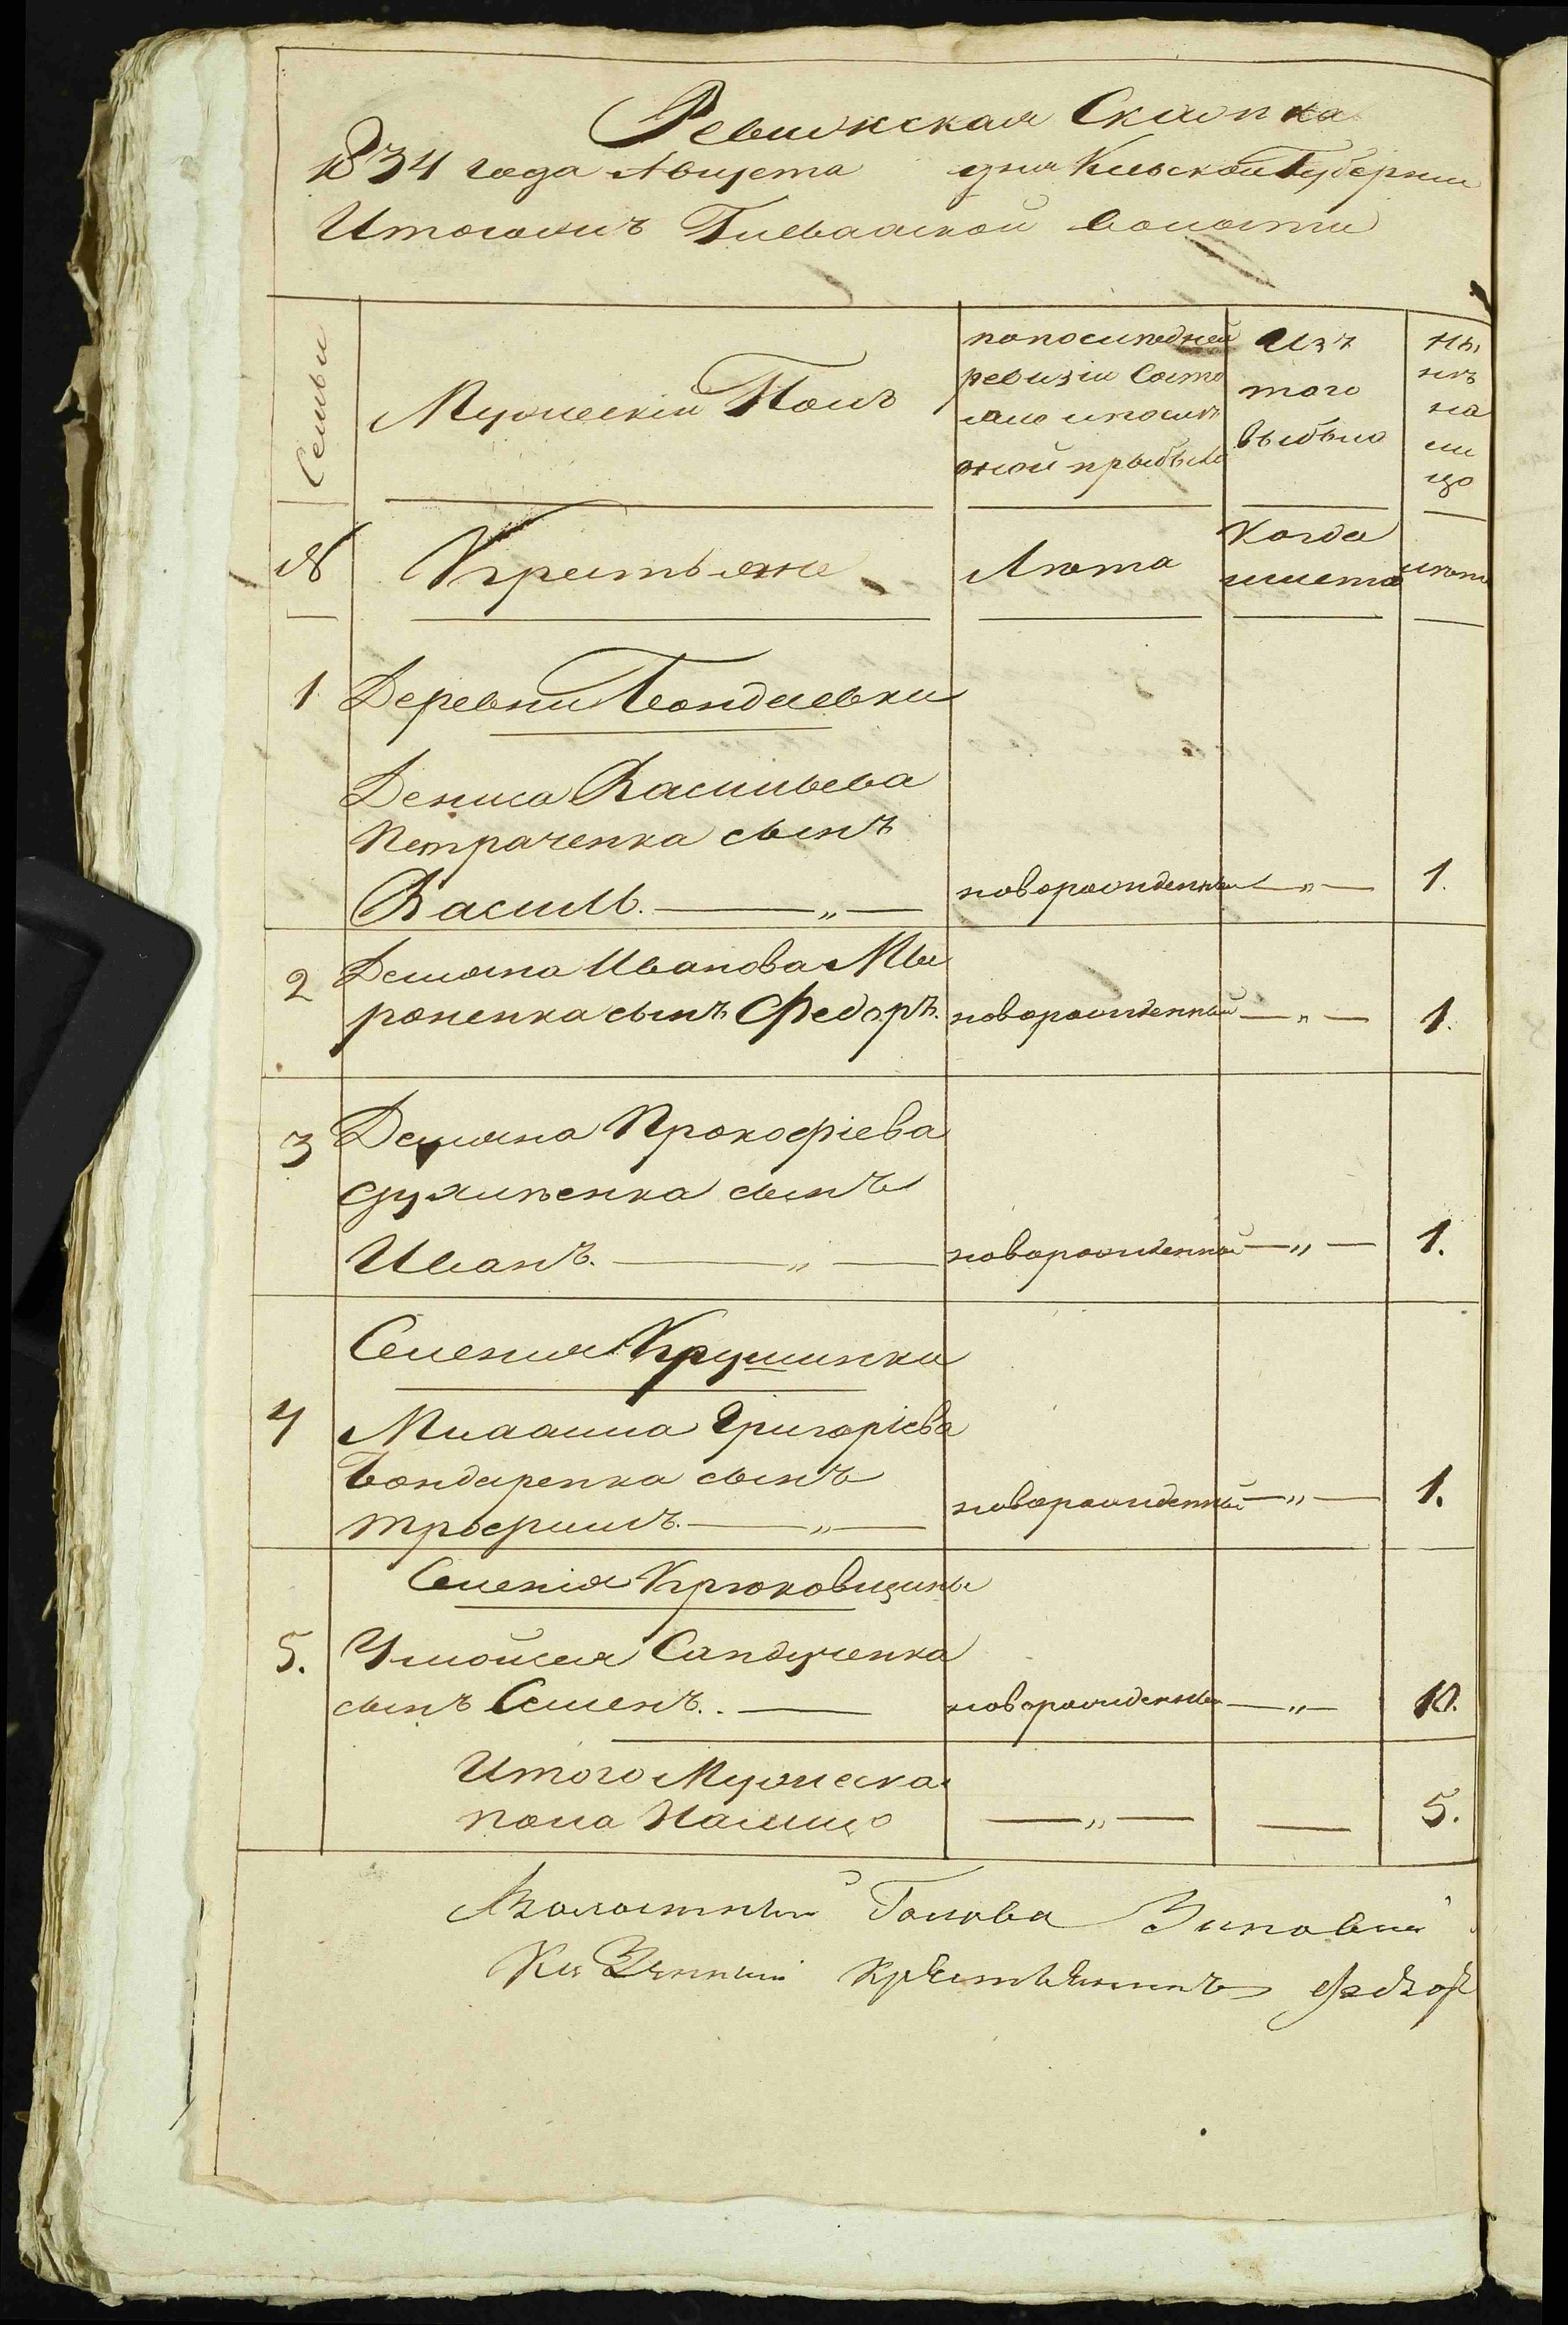 Ревижская Сказка
1834 года Августа дня Киевской Губернии
Итогомъ Гневаской волости
Семьи
Мужескiй Полъ
попоследней
ревизiи Состо
яло ипослѣ
оной прыбыло
Изъ
того
выбыло
ны
нѣ
на
ли
цо
№
Крестьяне
Лѣта
Когда
имянно
лѣта
1 Деревни Бондаевки
Дениса Васильева
Петраченка сынъ
Василь. — „ — новорожденный — „ — 1.
2 Демяна Иванова Мы
роненка сынъ Федоръ. новорожденный — „ — 1.
3 Демяна Прокофiева
сынъ
Иванъ. — „ — новорожденный — „ — 1.
Селения Крушинки
4 Григорiева
Бондаренка сынъ
трофимъ. — „ — новорожденный — „ — 1.
Селенiя Крюковщины
5. Сандученка
сынъ Семенъ. — новорожденный — „ — 10.
Итого Мужеска
пола Налицо — „ — — 5.
Волостный Голова Зиновий
Казенный Крестьянинъ Федор